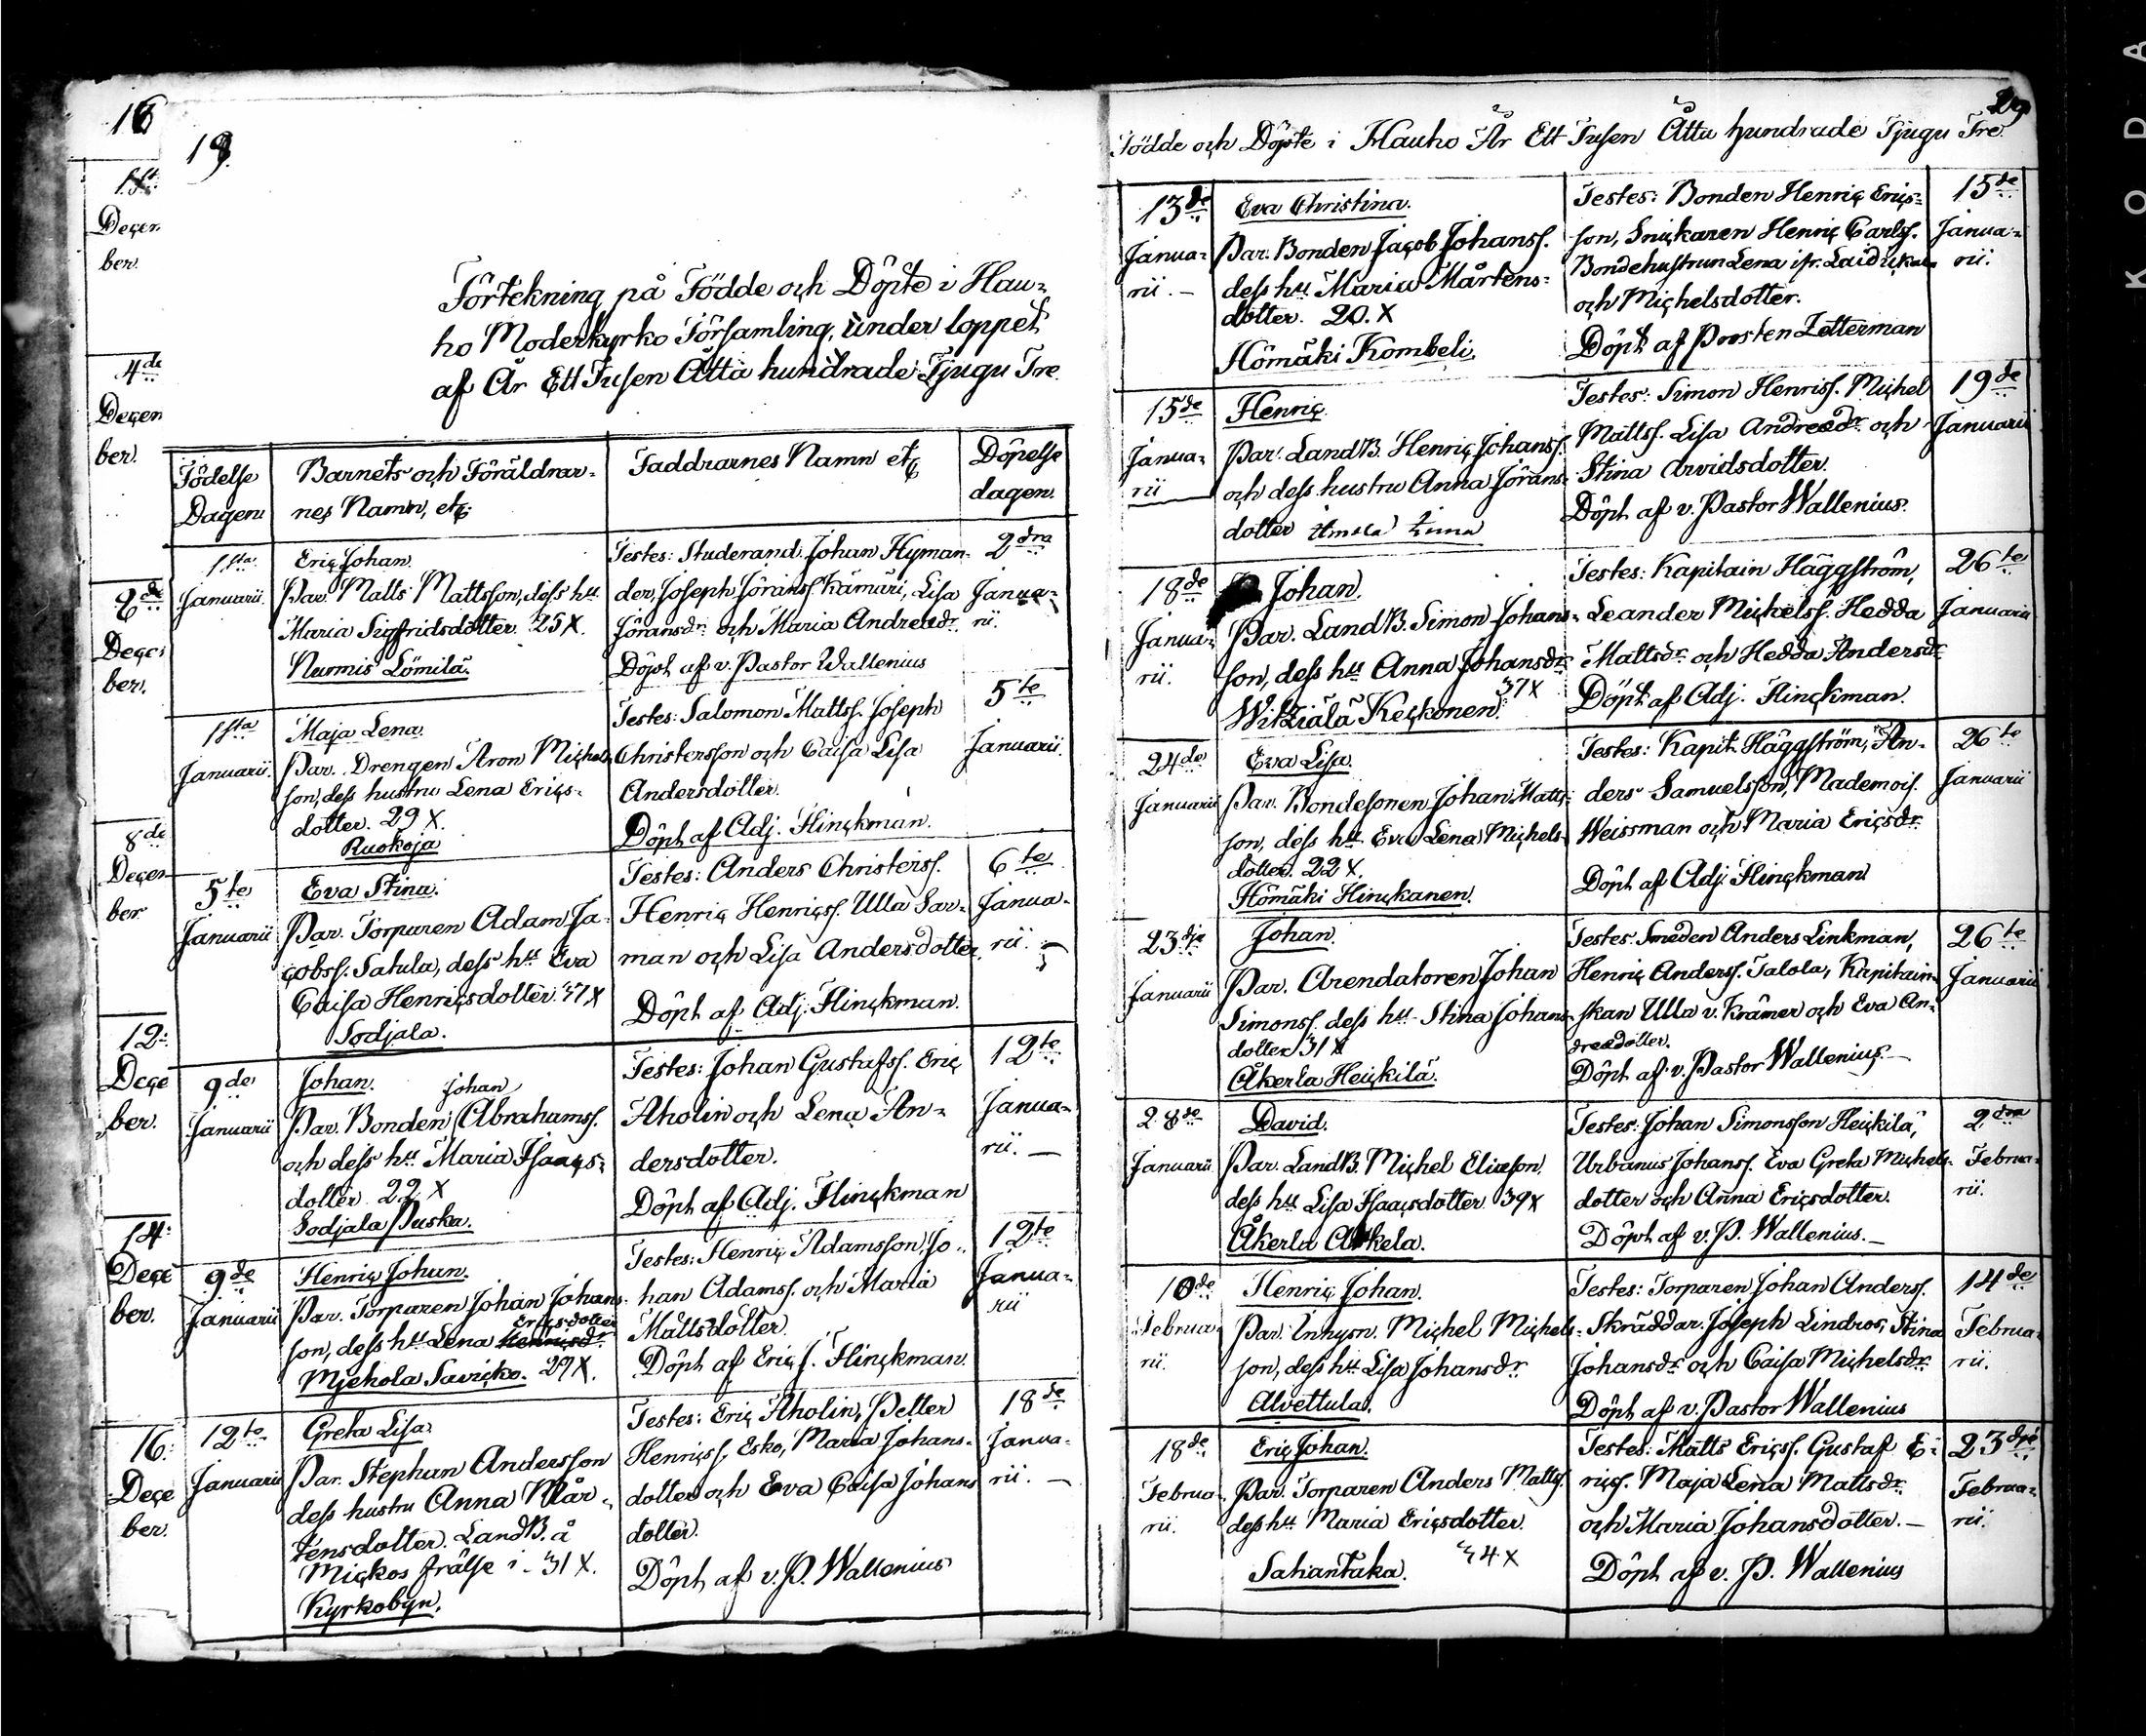 16
1ste
Decem
ber.
4de
Decem
ber.
de
Decem
ber.
8de
Decem
ber
12:
Dece
ber.
14:
Dece
ber.
16:
Dece
ber.
19.
Förtekning på Födde och Döpte i Hau-
ho Moderkyrko Församling, under loppet
af År Ett Tusen Åtta hundrade Tjugu Tre
Födelse
Dagen
Barnets och Föräldrar-
nes Namn, etc
Faddrarnes Namn etc
Döpelse
dagen.
1sta
Januarii
Eric Johan.
Par. Matts Mattsson, dess hu
Maria Sigfridsdotter. 25 X.
Nurmis Lömilä.
Testes: Studerand. Johan Hyman-
der, Joseph Jöranss. Kämäri, Lisa
Jöransdr och Maria Andreædr
Döpt af v. Pastor Wallenius
2dra
Janua-
rii.
1sta
Januarii.
Maja Lena
Par. Drengen Aron Michels
son, dess hustru Lena Erics-
dotter. 29 X.
Ruokoja
Testes: Salomon Mattss. Joseph
Christersson och Caisa Lisa
Andersdotter.
Döpt af Adj. Flinckman.
5te
Januarii.
5te
Januarii
Eva Stina.
Par. Torparen Adam Ja-
cobss. Satula, dess hu Eva
Caisa Henricsdotter 37 X
Sodjala.
Testes: Anders Christerss.
Henric Henricss. Ulla Sar-
man och Lisa Andersdotter.
Döpt af Adj. Flinckman.
6te
Janua-
rii.
9de
Januarii
Johan.
Johan
Par. Bonden Abrahamss.
och dess hu Maria Isaacs-
dotter 22 X
Sodjala Puska.
Testes: Johan Gustafss. Eric
Aholin och Lena An-
dersdotter.
Döpt af Adj. Flinckman
12te
Janua-
rii. —
9de
Januarii
Henric Johan.
Par. Torparen Johan Johans-
Ericsdotter
son, dess hu Lena Henricsdr
Mjehola Savicko. 27 X.
Testes: Henric Adamsson, Jo-
han Adamss. och Maria
Mattsdotter.
Döpt af Eric J. Flinckman.
12te
Janua-
rii
12te
Januarii
Greta Lisa.
Par. Stephan Andersson
dess hustru Anna Mår-
tensdotter. LandB. å
Mickos frälse i - 31 X.
Kyrkobyn.
Testes: Eric Aholin, Petter
Henricss. Esko, Maria Johans-
dotter och Eva Caisa Johans
dotter.
Döpt af v. P. Wallenius
18de
Janua-
rii. —
Födde och Döpte i Hauho År Ett Tusen Åtta hundrade Tjugu Tre
13de
Janua-
rii. —
Eva Christina.
Par. Bonden Jacob Johanss.
dess hu Maria Mårtens-
dotter. 20. X
Hömäki Kombeli.
Testes: Bonden Henric Erics-
son, Snickaren Henric Carlss.
Bondehustrun Lena
och Michelsdotter.
Döpt af Prosten Zetterman
15de
Janua-
rii.
15de
Janua-
rii
Henric
Par. LandB. Henric Johanss.
och dess hustru Anna Jörans-
dotter
Testes: Simon Henrics. Michel
Mattss. Lisa Andreædr och
Stina Arvidsdotter.
Döpt af v. Pastor Wallenius.
19de
Januarii
18de
Janua-
rii.
Johan.
Par. LandB. Simon Johans-
son, dess hu Anna Johansdr
37 X
Witziälä Keckonen.
Testes: Kapitain Häggström,
Leander Michelss. Hedda
Mattsdr och Hedda Andersdr
Döpt af Adj. Flinckman.
26te
Januarii
24de
Januarii
Eva Lisa.
Par. Bondesonen Johan Matts-
son, dess hu Eva Lena Michels-
dotter. 22 X.
Hömäki Hinckanen.
Testes: Kapit. Häggström, An-
ders Samuelsson, Mademois.
Weissman och Maria Ericsdr
Döpt af Adj. Flinckman
26te
Januarii
23dje
Januarii
Johan.
Par. Arendatoren Johan
Simonss. dess hu Stina Johans-
dotter 31 X
Åkerla Heickilä.
Testes. Smeden Anders Linkman,
Henric Anderss. Talola, Kapitain-
skan Ulla v. Krämer och Eva An-
dreædotter.
Döpt af v. Pastor Wallenius. —
26te
Januarii
28de
Januarii
David.
Par. LandB. Michel Eliæson.
dess hu Lisa Isaacsdotter 39 X
Åkerla Arkela.
Testes: Johan Simonsson Heickilä,
Urbanus Johanss. Eva Greta Michels-
dotter och Anna Ericsdotter.
Döpt af v. P. Wallenius. —
2dra
Februa-
rii.
10de
Februa-
rii.
Henric Johan.
Par. Inhysn. Michel Michels-
son, dess hu Lisa Johansdr
Alvettula.
Testes: Torparen Johan Anderss.
Skräddar. Joseph Lindros, Stina
Johansdr och Caisa Michelsdr
Döpt af v. Pastor Wallenius
14de
Februa-
rii.
18de
Februa-
rii.
Eric Johan.
Par. Torparen Anders Mattss.
dess hu Maria Ericsdotter.
34 X
Sahantaka.
Testes: Matts Ericss. Gustaf E-
ricss. Maja Lena Mattsdr
och Maria Johansdotter. —
Döpt af v. P. Wallenius
23dje
Februa-
rii.
KODA